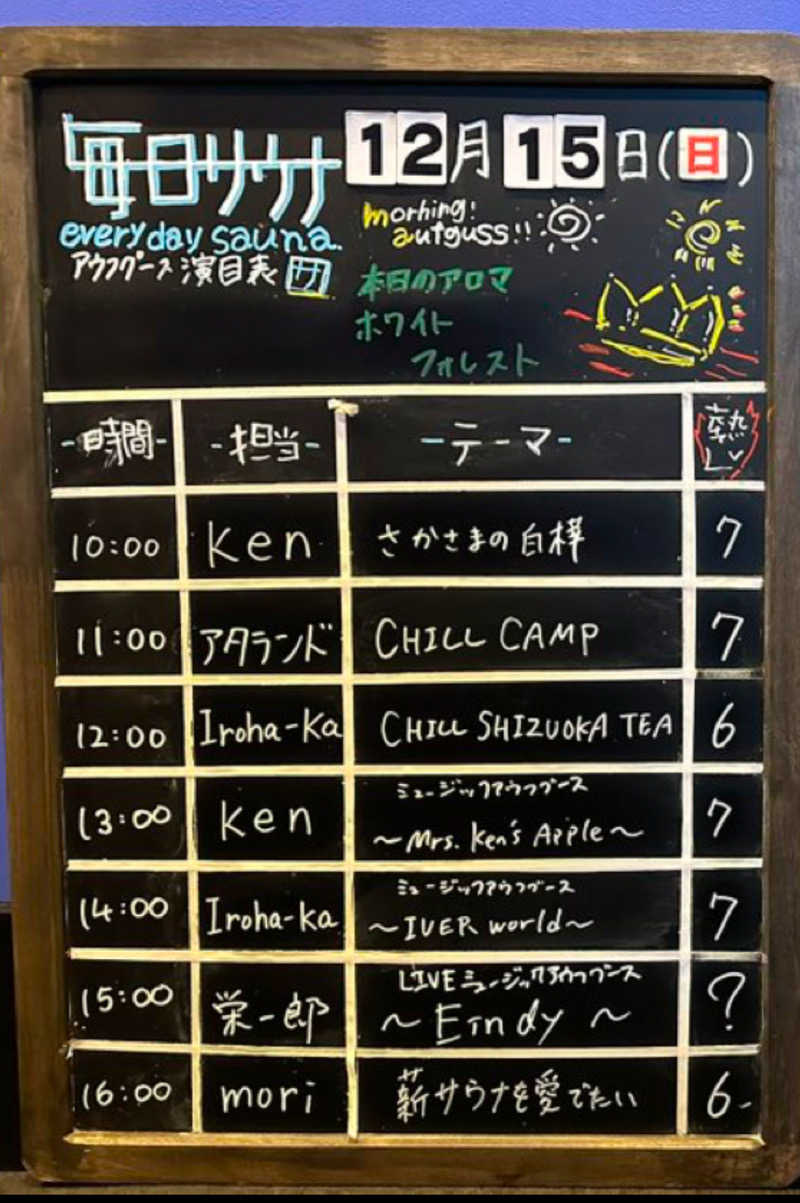 毎日サウナ
12月15日(日)
everyday sauna.
morning!
autguss!!
アウフグース演目表
本日のアロマ
ホワイト
フォレスト
-時間- -担当- -テーマ- 熱Lv
10:00 Ken さかさまの白樺 7
11:00 アタランド CHILL CAMP 7
12:00 Iroha-Ka CHILL SHIZUOKA TEA 6
13:00 Ken ミュージックアウフグース
〜Mrs. Ken's Apple〜 7
14:00 Iroha-Ka ミュージックアウフグース
〜IVER world〜 7
15:00 栄一郎 LIVEミュージックアウフグース
〜Eindy〜 ?
16:00 mori 薪サウナを愛でたい 6